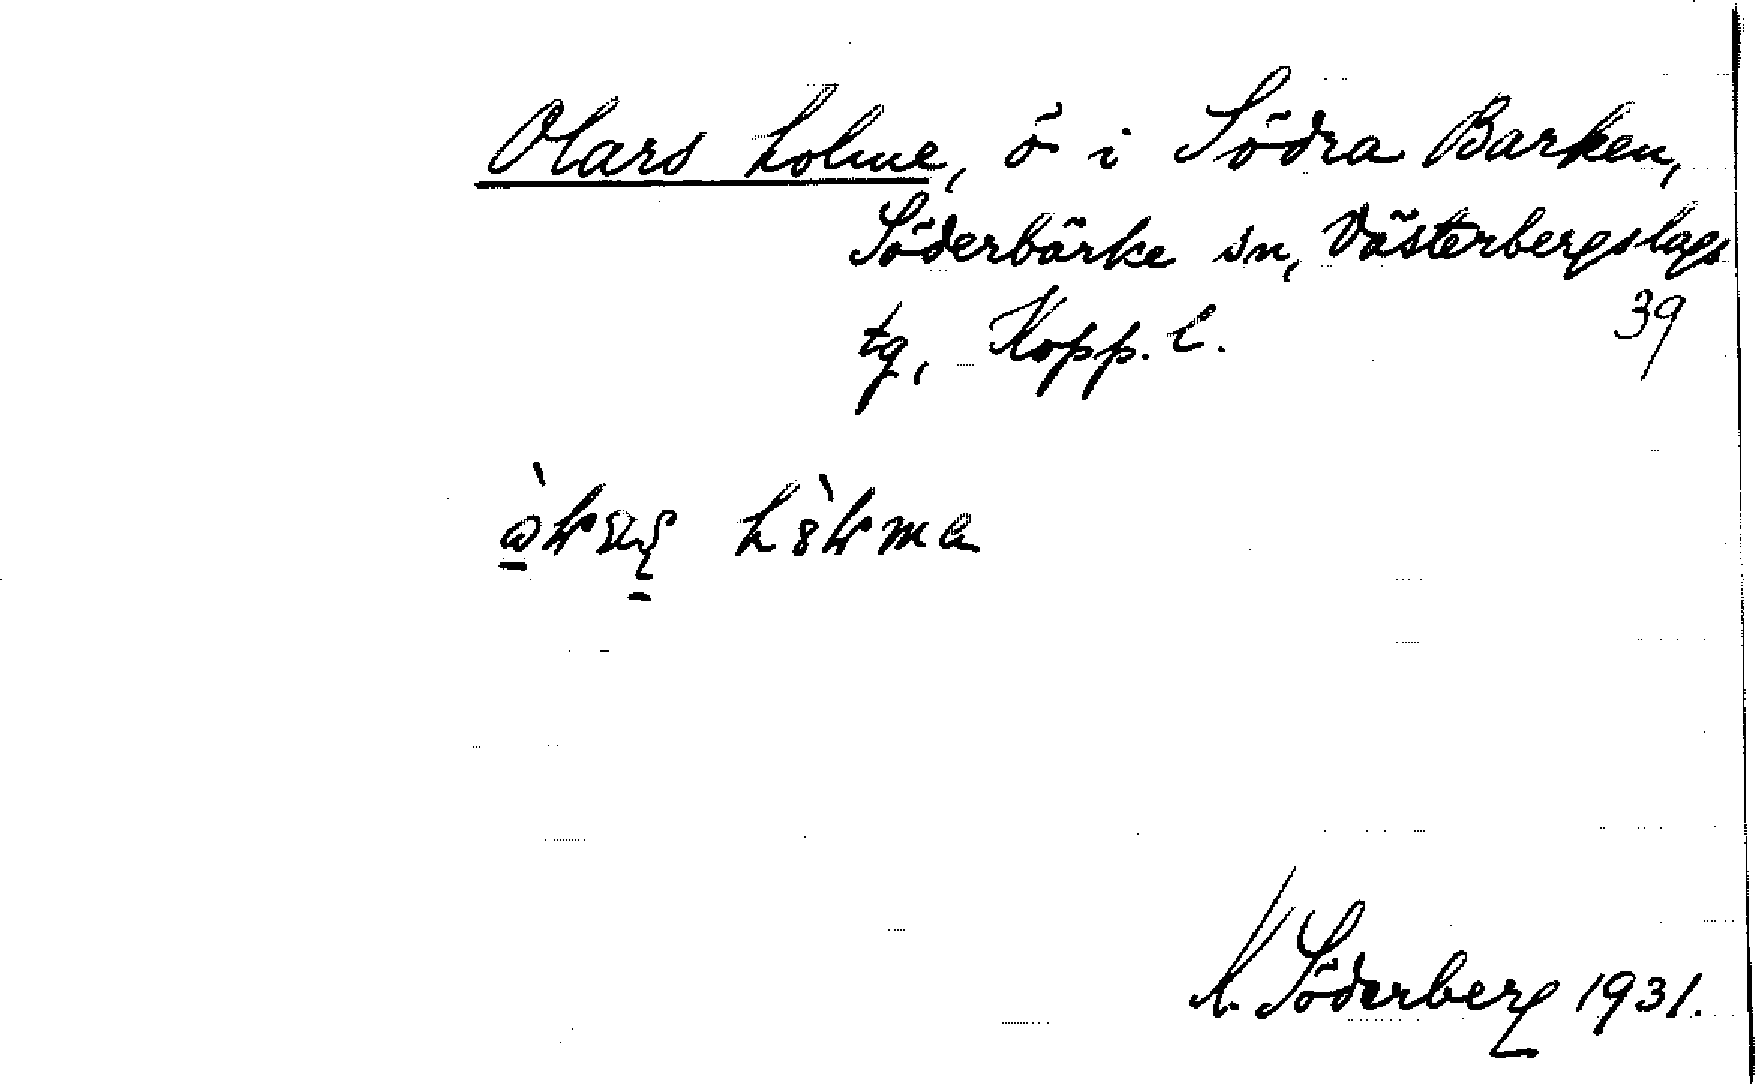 Olars holme, ö i Södra Barken,
Söderbärke sn, Västerbergslags
tg, Kopp. l.
39
K. Söderberg 1931.